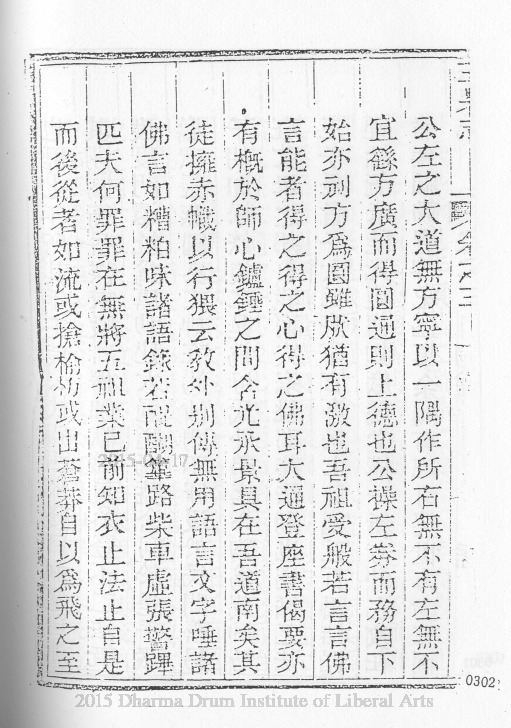 公左之大道無方寧以一隅作所右無不有左無不
宜繇方廣而得圓通則上德也公操左券而務自下
始亦刓方為圓雖然猶有激也吾祖愛般若言言佛
言能者得之得之心得之佛耳大通登座書偈要亦
有概於師心鑪錘之間含光承景具在吾道南矣其
徒擁赤幟以行猥云教外別傳無用語言文字唾諸
佛言如糟粕味諸語錄若醍醐篳路柴車虛張警蹕
匹夫何罪罪在無將五祖業已前知衣止法止自是
而後從者如流或搶榆枋或出蒼莽自以為飛之至
0302
2015-04-17
2015 Dharma Drum Institute of Liberal Arts